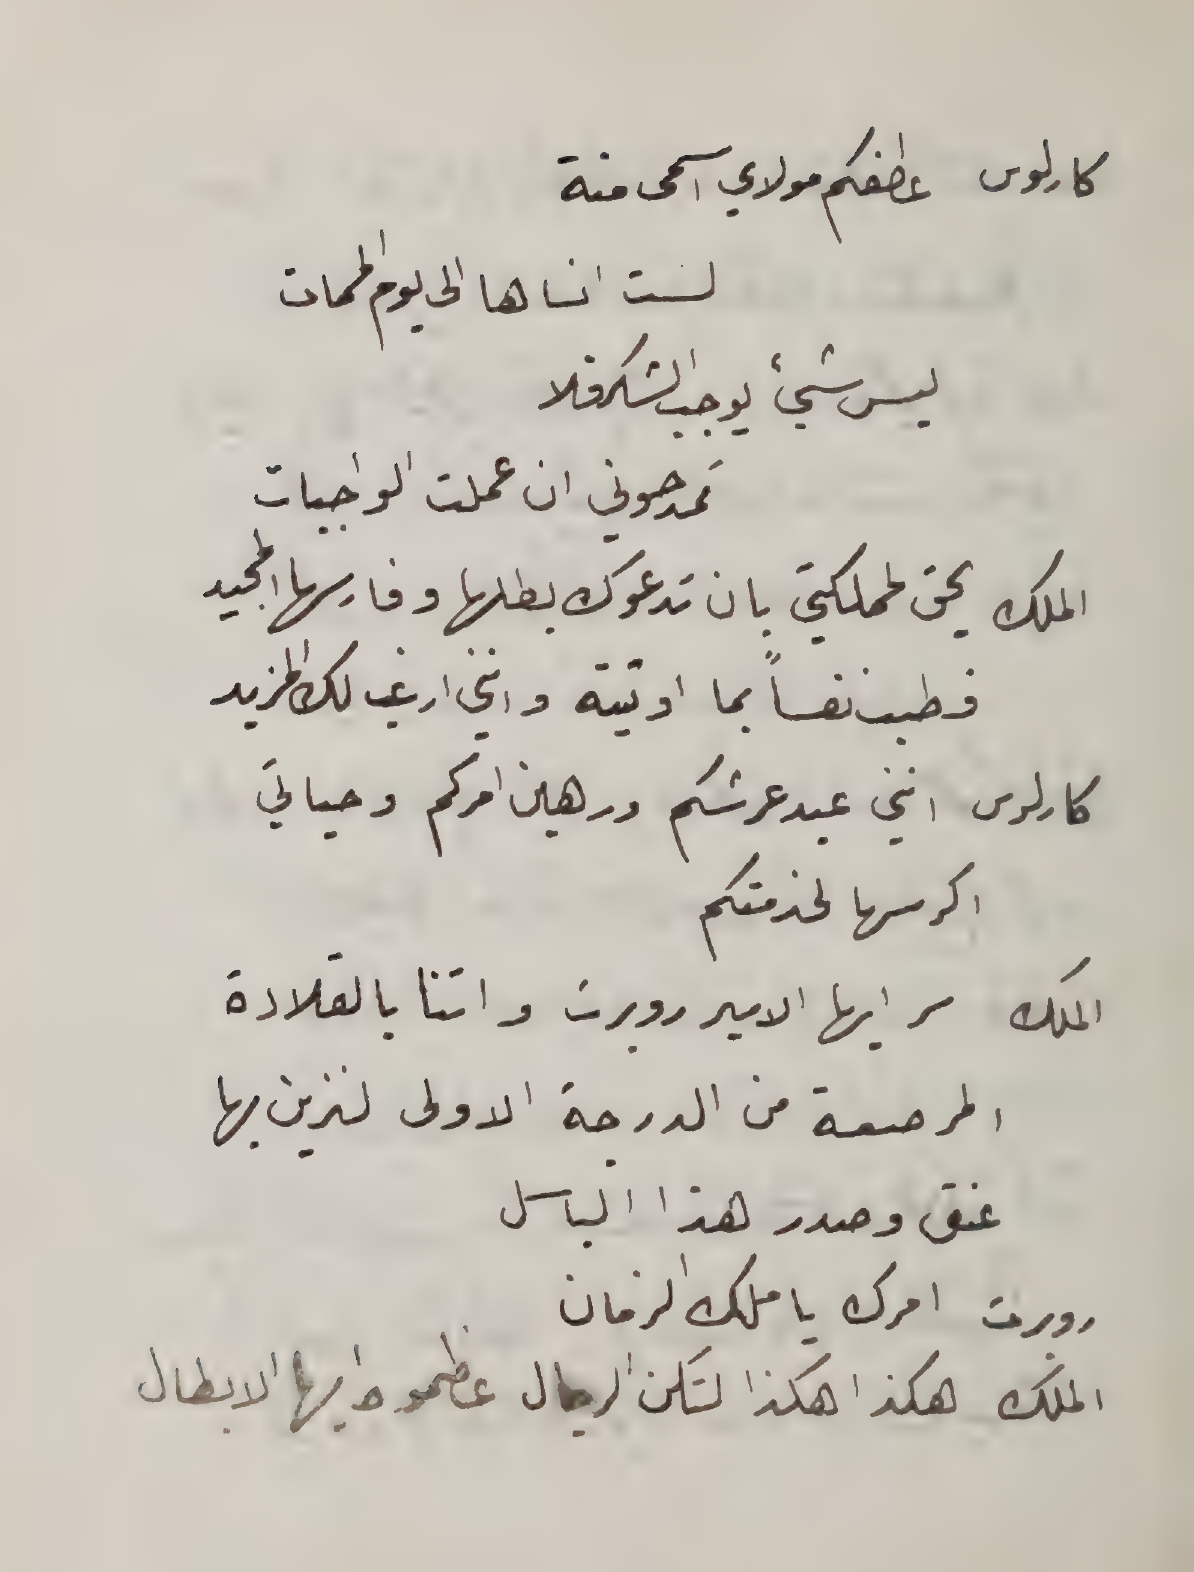 كارلوس عطفكم مولاي اسمى منة
لست انساها الى يوم الممات
ليس شيئ يوجب الشكر فلا
تمدحوني ان عملت الواجبات
الملك يحق لمملكتي بان تدعوك بطلها وفارسها المجيد
فطب نفساً بما اوتيته وانني ارغب لك المزيد
كارلوس انني عبد عرشكم ورهين امركم وحياتي
اكرسها لخدمتكم
الملك سر ايها الامير روبرت واتنا بالقلادة
المرصعة من الدرجة الاولى لنزين بها
عنق وصدر هذا الباسل
روبرت امرك يا ملك الزمان
الملك هكذا هكذا لتكن الرجال عظموه ايها الابطال